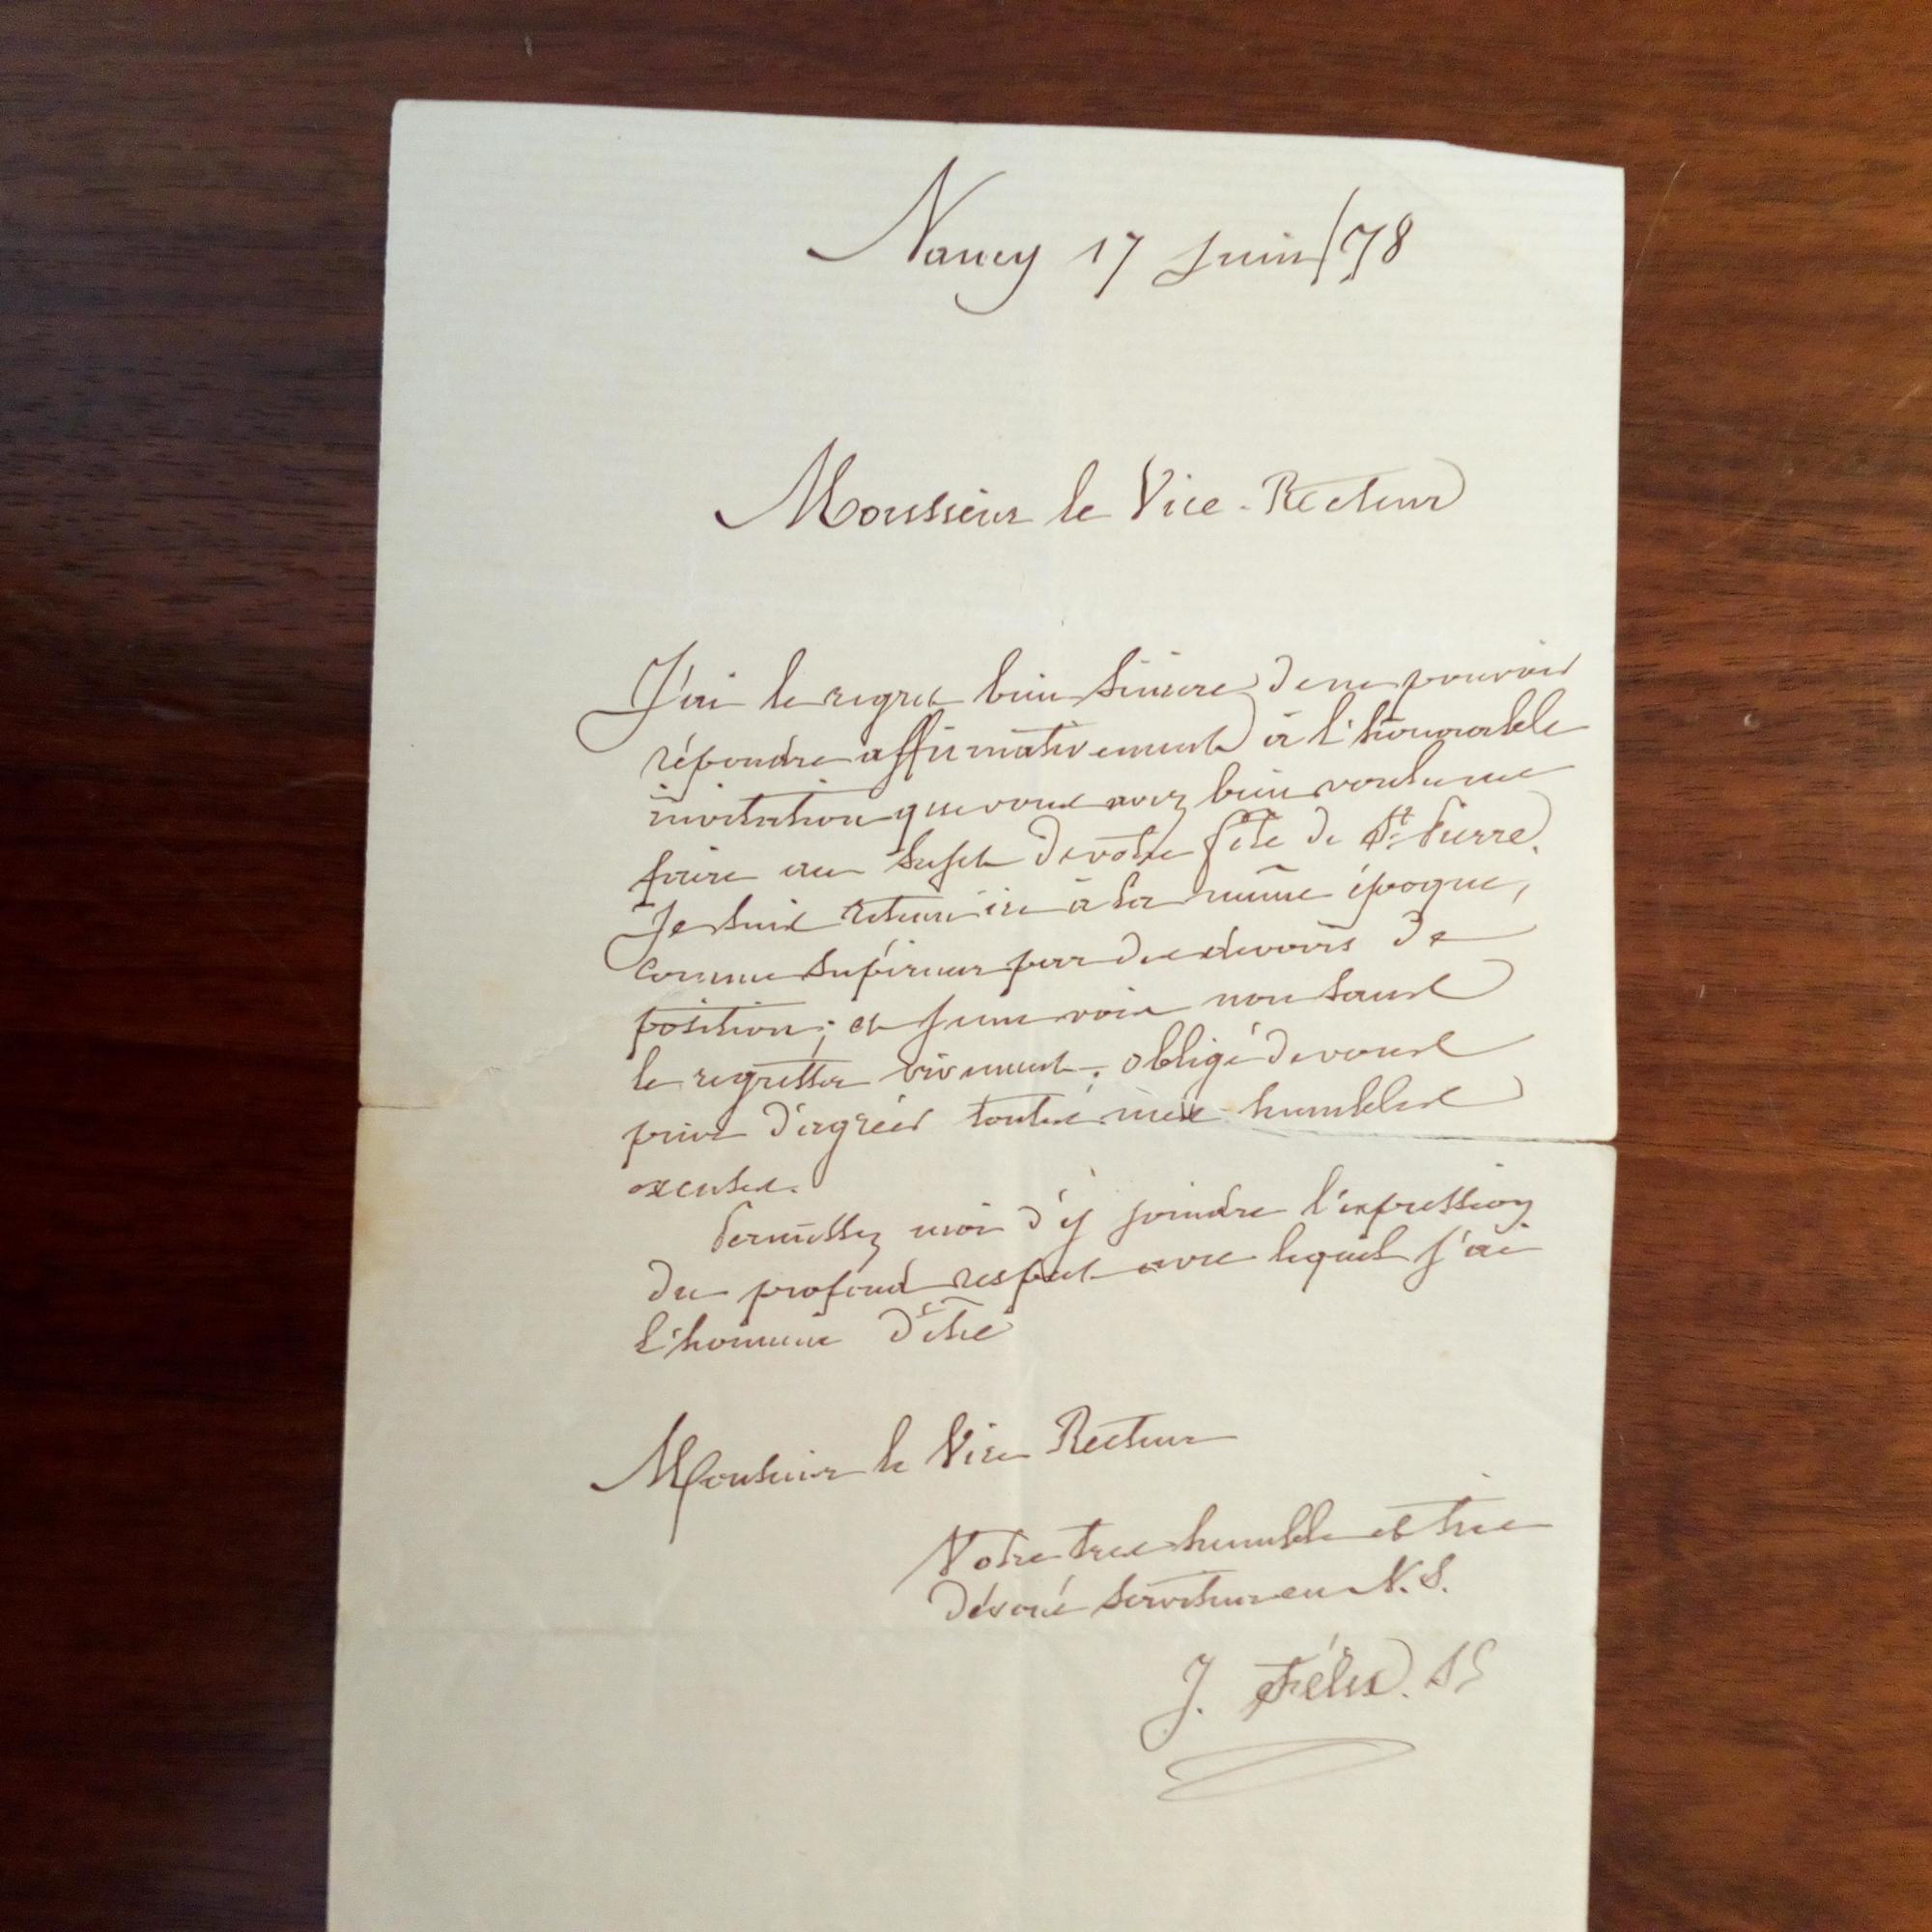 Nancy 17 juin/78
Monsieur le Vice-Recteur
J'ai le regret bien sincère de ne pouvoir
répondre affirmativement à l'honorable
invitation que vous avez bien voulu me
faire au sujet de votre fête de St Pierre.
Je suis retenu ici à la même époque,
comme supérieur par des devoirs de
position; et je me vois non sans
le regretter vivement, obligé de vous
prier d'agréer toutes mes humbles
excuses.
Permettez moi d'y joindre l'expression
du profond respect avec lequel j'ai
l'honneur d'être
Monsieur le Vice Recteur
Votre très humble et très
dévoué serviteur en N. S.
J. Félix.